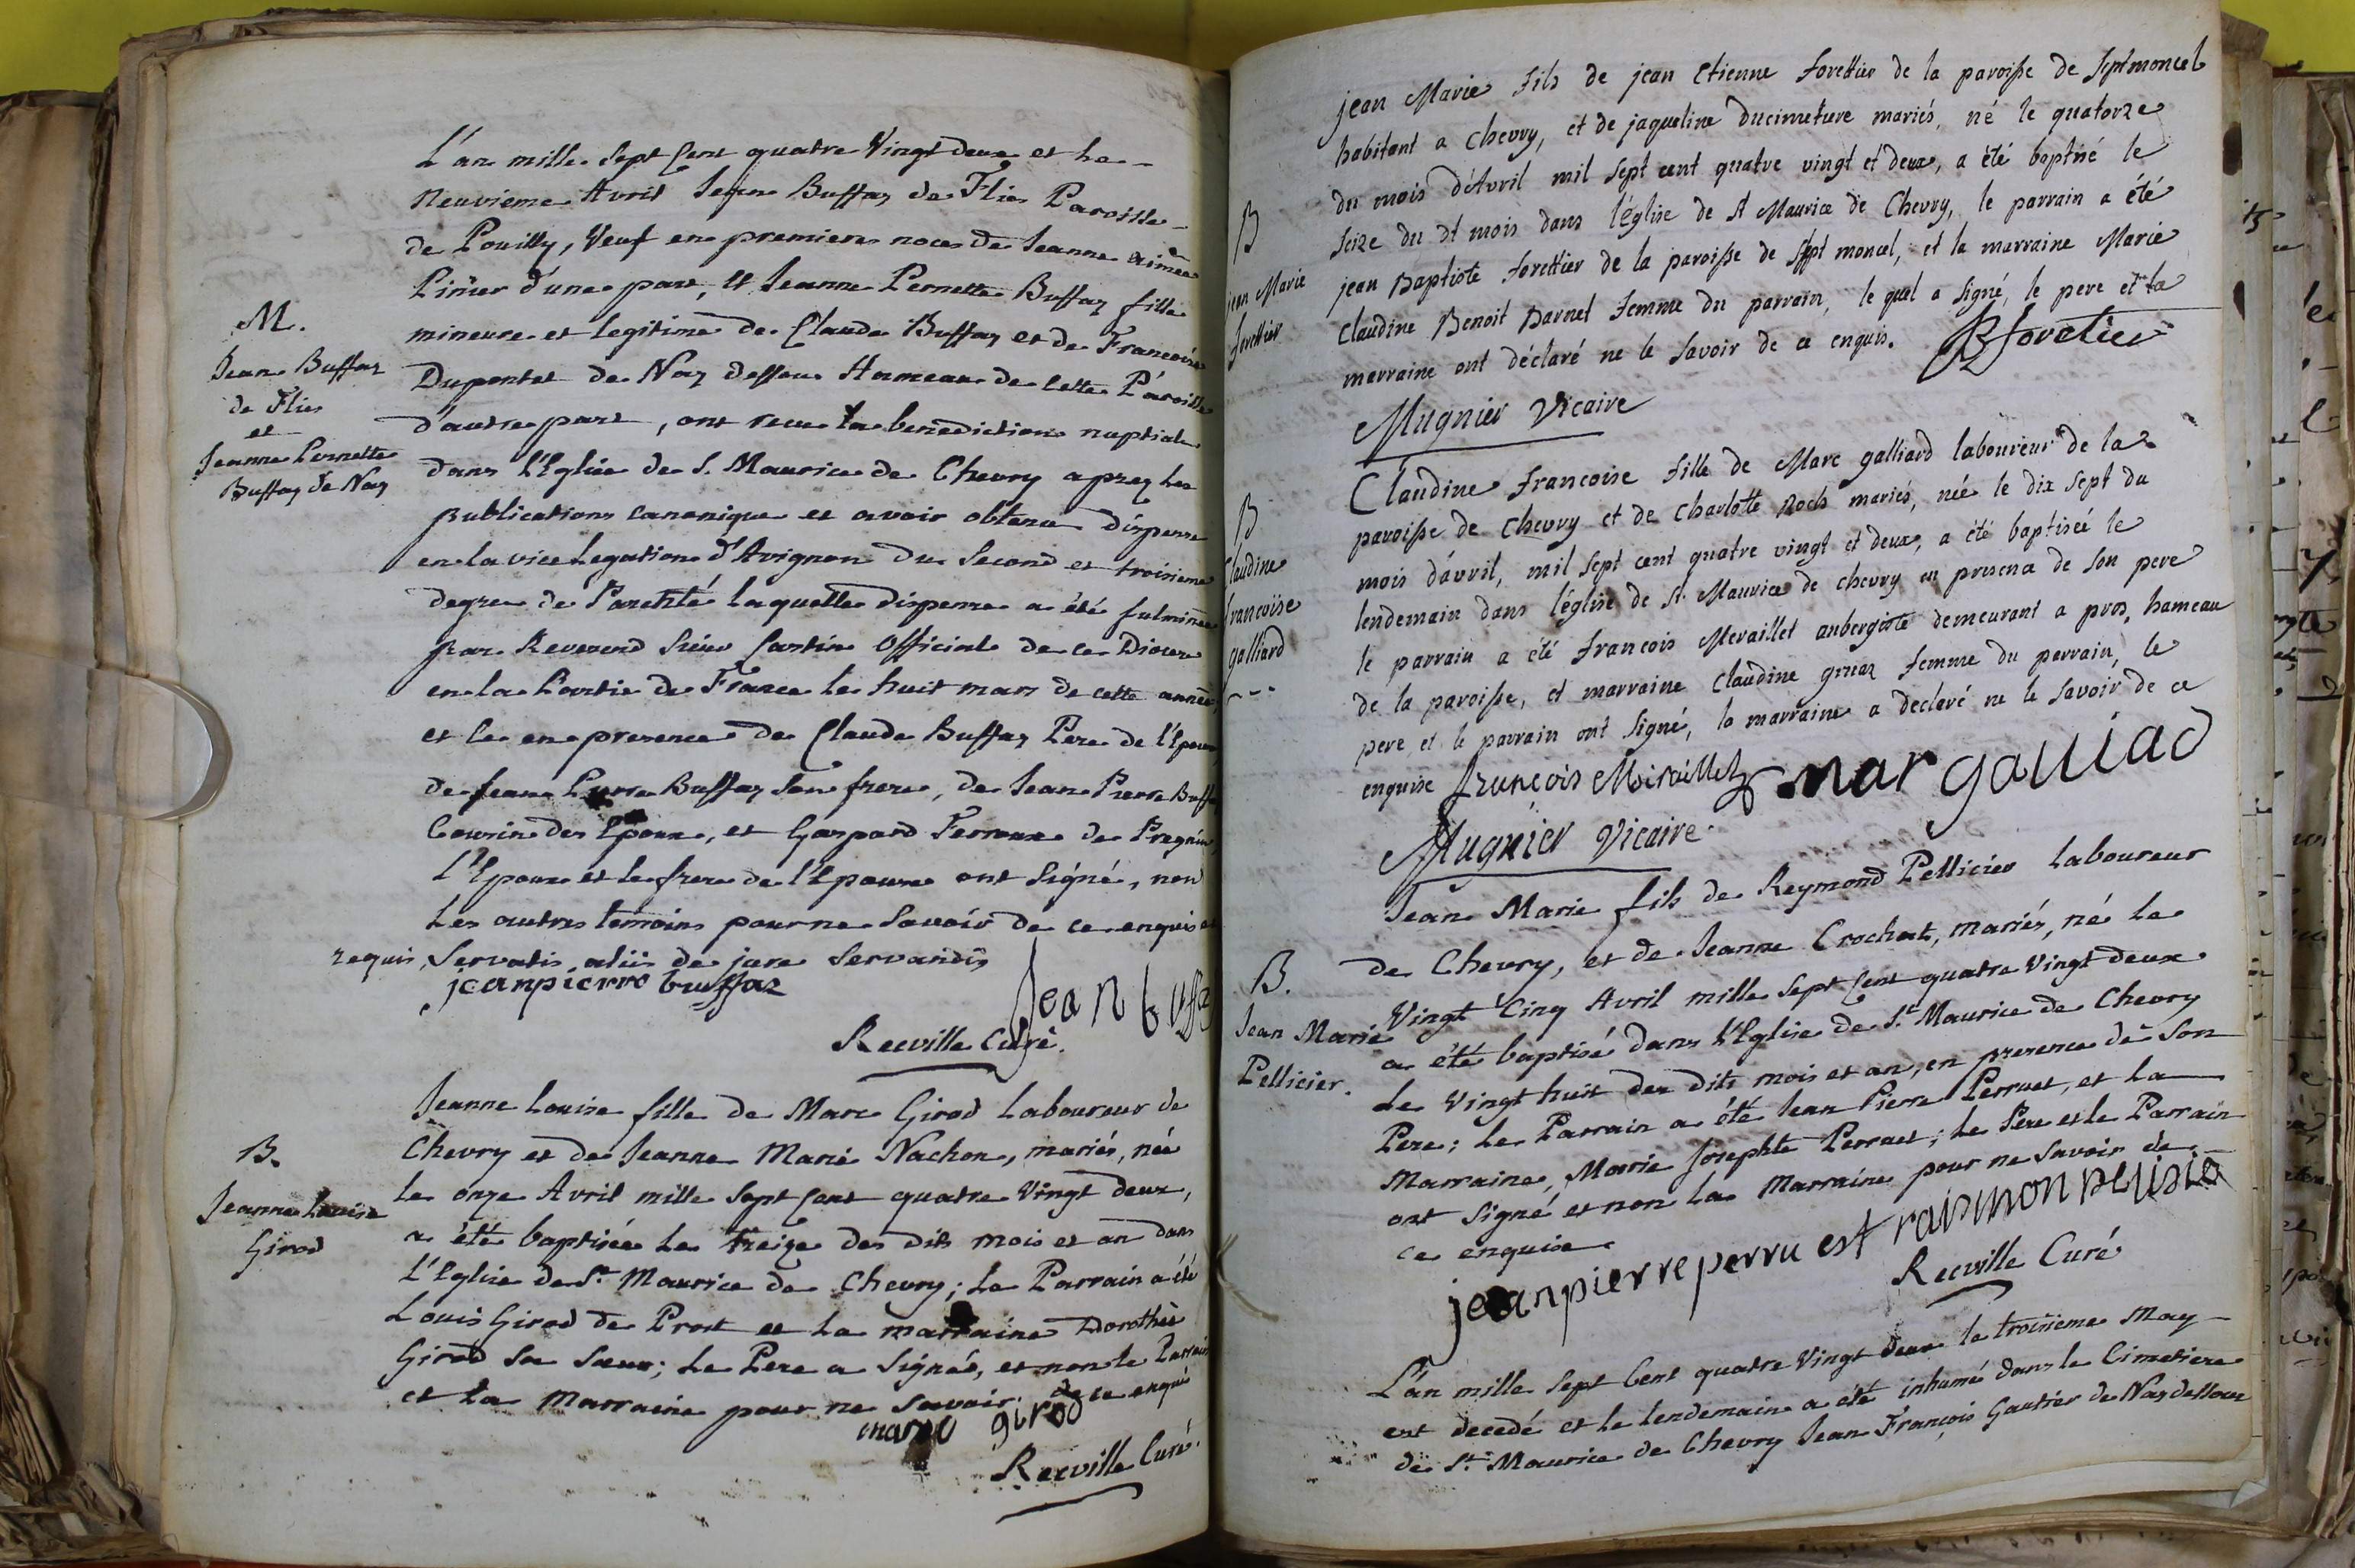 L'an mille Sept Cent quatre Vingt deux et le
Neuvieme Avril Jean Buffaz de Flies Paroisse
de Pouilly, Veuf en premieres noces de Jeanne aimée
d'une part, et Jeanne Pernette Buffaz fille
M.
mineure et legitime de Claude Buffaz et de Francoise
Jean Buffaz
Dupontet de Naz dessous Hameau de cette Paroisse
de Flies
et
d'autre part, ont recue la benediction nuptiale
Jeanne Pernette
dans l'Eglise de S. Maurice de Chevry aprez les
Buffaz de Naz
publications canonique et avoir obtenu dispense
en la vice Legation d'Avignon du Second et troisieme
degre de Parenté laquelle dispense a été fulminée
par Reverend Sieur Castin Official de ce Diocese
en la Partie de France le huit mars de cette année,
et le en presence de Claude Buffaz Pere de l'Epouse
de Jean Pierre Buffaz son frere, de Jean Pierre Buffa
Cousin des Epoux, et Gaspard Ferroux de Pregnin
l'Epoux et le frere de l'Epouse ont Signé, non
les autres temoins pour ne Savoir de ce enquis et
requis, Servatis aliis de jure Servandis
jeanpierre buffaz
Jean buffaz
Recville Curé.
Jeanne Louise fille de Marc Girod Laboureur de
B.
Chevry et de Jeanne Marie Nachon, mariés, née
le onze Avril mille Sept Cent quatre Vingt deux,
Jeanne Louise
a été baptisée le treize des dits mois et an dans
Girod
l'Eglise de St Maurice de Chevry; le Parrain a été
Louis Girod de Prost et la marraine Dorothée
Girod sa Soeur; le Pere a Signé, et non le Parrain
et la Marraine pour ne Savoir de ce enquis
marc girod
Recville Curé.
jean Marie fils de jean Etienne forettier de la paroisse de Septmoncel
habitant a Chevry, et de jaqueline Ducimeture mariés, né le quatorze
du mois d'Avril mil Sept cent quatre vingt et deux, a été baptisé le
B
Seize du dt mois dans l'église de St Maurice de Chevry, le parrain a été
jean Marie
jean Baptiste forettier de la paroisse de Sept moncel, et la marraine Marie
forettier
Claudine Benoit Barnet femme du parrain, le quel a Signé, le pere et la
marraine ont déclaré ne le Savoir de ce enquis. JB foretier
Mugnier Vicaire
Claudine francoise fille de Marc galliard laboureur de la
B
paroisse de Chevry et de Charlotte Roch mariés, née le dix Sept du
Claudine
mois d'avril, mil Sept cent quatre vingt et deux, a été baptisée le
francoise
lendemain dans l'église de St Maurice de chevry en presence de Son pere
galliard
le parrain a été francois Meraillet aubergiste demeurant a pros, hameau
de la paroisse, et marraine Claudine femme du parrain, le
pere et le parrain ont Signé, la marraine a declaré ne le Savoir de ce
enquise françois Miraillet mar galliad
Mugnier Vicaire.
Jean Marie fils de Reymond Pellicier Laboureur
B.
de Chevry, et de Jeanne Crochat, mariés, né le
Vingt Cinq Avril mille Sept Cent quatre Vingt deux
Jean Marie
a été baptisé dans l'Eglise de St Maurice de Chevry
Pellicier.
le Vingt huit des dits mois et an, en presence de Son
Pere; le Parrain a été Jean Pierre Perruet, et la
Marraine, Marie Josephte Perruet; le Pere et le Parrain
ont Signé et non la Marraine pour ne Savoir de
ce enquise.
jeanpierre perru est raismon pelisie
Recville Curé
L'an mille Sept Cent quatre Vingt deux le troisieme May
est decedé et le lendemain a été inhumé dans le Cimetiere
de St Maurice de Chevry Jean François Gautier de Naz dessous